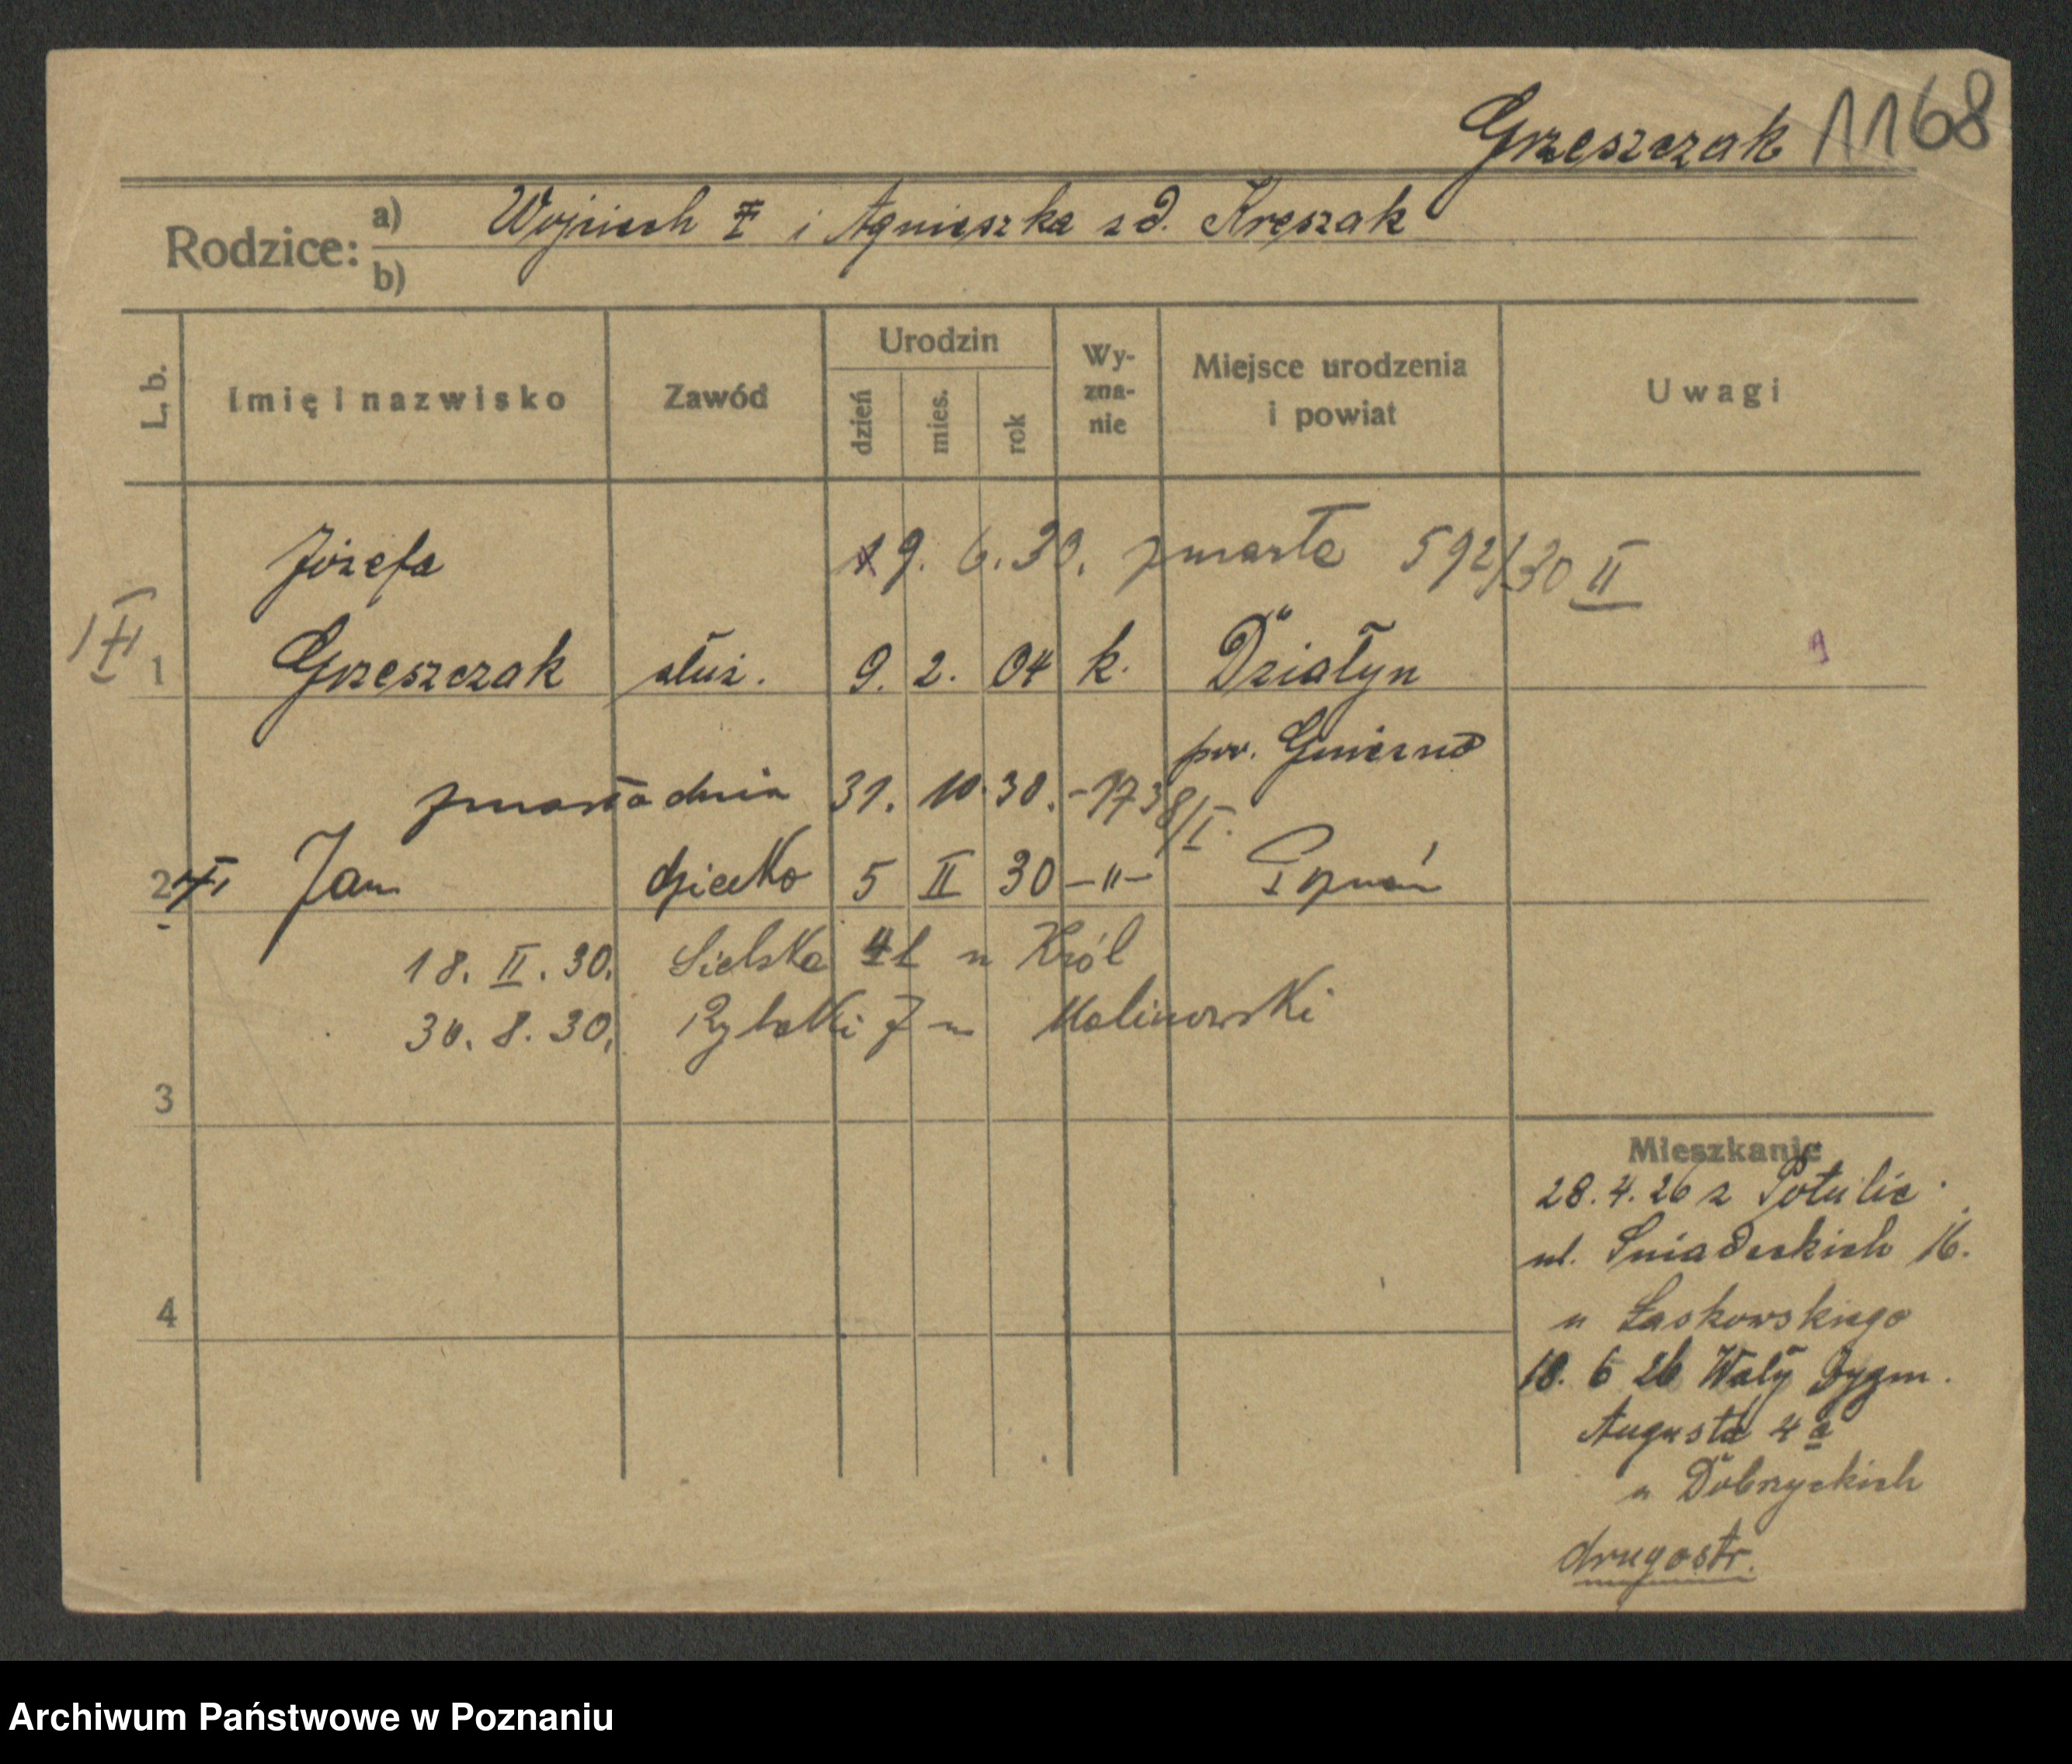 Grzeszczak 1168
Rodzice: a) Wojciech ✝ i Agnieszka z d. Kręszak
b)
L. b.
Imię i nazwisko
Zawód
Urodzin
dzień
mies.
rok
Wy-
zna-
nie
Miejsce urodzenia
i powiat
Uwagi
Józefa 19. 6. 30. zmarła 592/30 II
1 Grzeszczak służ. 9. 2. 04 k. Działyn
pow. Gniezno
zmarła dnia 31. 10. 30. - 1738/I.
2 Jan dziecko 5 II 30 -"- Poznań
18. II. 30. Sielska u Król
30. 8. 30. Rybaki 7 u Malinowski
3
4
Mieszkanie
28. 4. 26 z Potulic.
ul. Śniadeckich 16.
u Łaskowskiego
18. 6 26 Wały Zygm.
Augusta 4 a
u Dobrzyckich
drugostr.
Archiwum Państwowe w Poznaniu